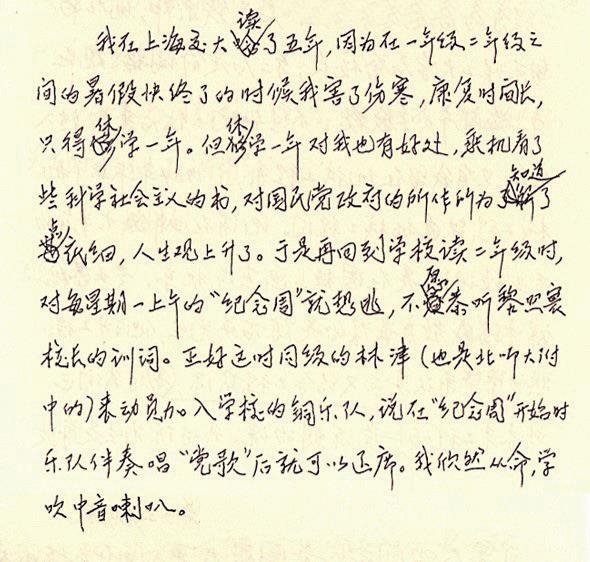 我在上海交大读了五年，因为在一年级二年级之
间的暑假快终了的时候我害了伤寒，康复时间长，
只得休学一年。但休学一年对我也有好处，乘机看了
些科学社会主义的书，对国民党政府的所作所为知道了
点底细，人生观上升了。于是再回到学校读二年级时，
对每星期一上午的“纪念周”就想逃，不愿恭听黎照寰
校长的训词。正好这时同级的林津（也是北师大附
中的）来动员加入学校的铜乐队，说在“纪念周”开始时
乐队伴奏唱“党歌”后就可以退席。我欣然从命，学
吹中音喇叭。